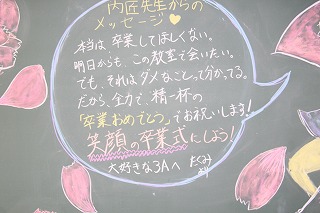 内匠先生からの
メッセージ♥
本当は卒業してほしくない。
明日からも、この教室で会いたい。
でも、それはダメなことって分かってる。
だから、全力で、精一杯の
「卒業おめでとう」でお祝いします!
笑顔の卒業式にしよう!
大好きな3Aへ たくみ